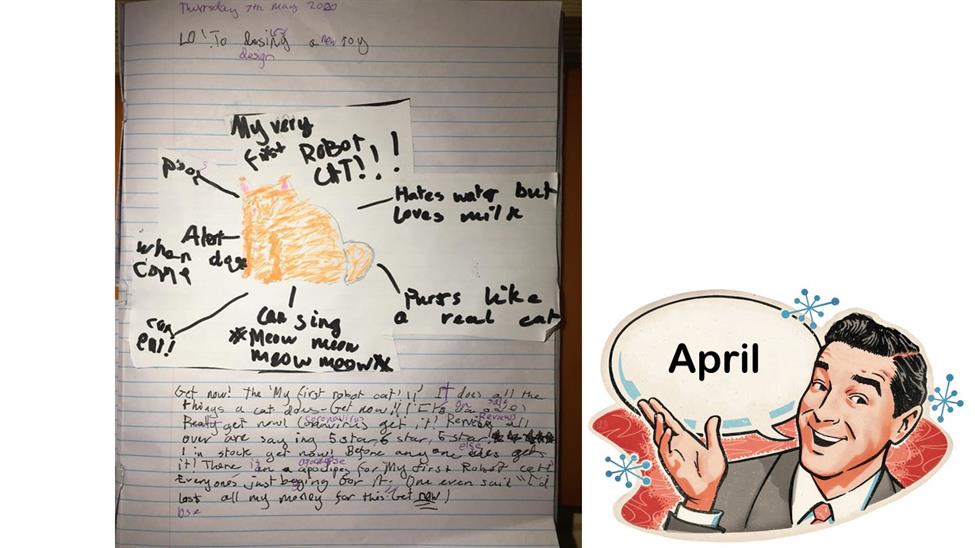 Thursday 7th May 2020
LO: To desing a new toy
design
My very
first ROBOT
CAT!!!
Hates water but
loves milk
Alot
when dogs
come
can
eat!
can sing
*Meow meow
meow meow*
Purrs like
a real cat
Get now! the 'My first robot cat!!!' It does all the
things a cat does. Get now!!! on sale
Really get now! Coronavirus get it! Reviews all
over are saying 5 star, 6 star, 5 star!
In stock get now! Before anyone else gets
it! There is an apocalypse for My first Robot cat!
Everyones just begging for it. One even said "I'd
lose all my money for this" Get now!
April